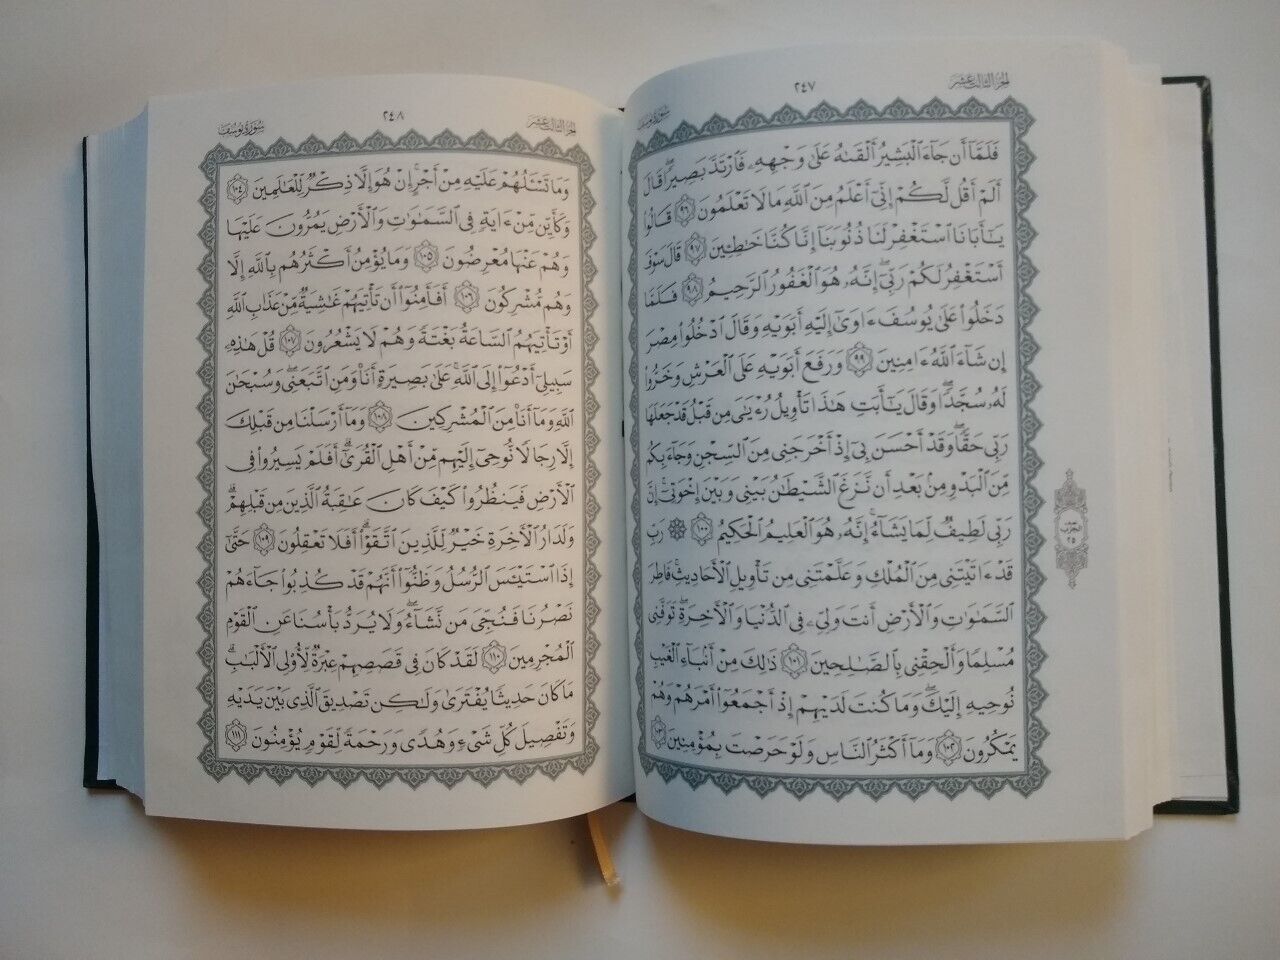 الجزء الثالث عشر
٢٤٧
سورة يوسف
فَلَمَّآ أَن جَآءَ ٱلْبَشِيرُ أَلْقَىٰهُ عَلَىٰ وَجْهِهِۦ فَٱرْتَدَّ بَصِيرًا ۖ قَالَ
أَلَمْ أَقُل لَّكُمْ إِنِّىٓ أَعْلَمُ مِنَ ٱللَّهِ مَا لَا تَعْلَمُونَ ٩٦ قَالُوا۟
يَـٰٓأَبَانَا ٱسْتَغْفِرْ لَنَا ذُنُوبَنَآ إِنَّا كُنَّا خَـٰطِـِٔينَ ٩٧ قَالَ سَوْفَ
أَسْتَغْفِرُ لَكُمْ رَبِّىٓ ۖ إِنَّهُۥ هُوَ ٱلْغَفُورُ ٱلرَّحِيمُ ٩٨ فَلَمَّا
دَخَلُوا۟ عَلَىٰ يُوسُفَ ءَاوَىٰٓ إِلَيْهِ أَبَوَيْهِ وَقَالَ ٱدْخُلُوا۟ مِصْرَ
إِن شَآءَ ٱللَّهُ ءَامِنِينَ ٩٩ وَرَفَعَ أَبَوَيْهِ عَلَى ٱلْعَرْشِ وَخَرُّوا۟
لَهُۥ سُجَّدًا ۖ وَقَالَ يَـٰٓأَبَتِ هَـٰذَا تَأْوِيلُ رُءْيَـٰىَ مِن قَبْلُ قَدْ جَعَلَهَا
رَبِّى حَقًّا ۖ وَقَدْ أَحْسَنَ بِىٓ إِذْ أَخْرَجَنِى مِنَ ٱلسِّجْنِ وَجَآءَ بِكُم
مِّنَ ٱلْبَدْوِ مِنۢ بَعْدِ أَن نَّزَغَ ٱلشَّيْطَـٰنُ بَيْنِى وَبَيْنَ إِخْوَتِىٓ ۚ إِنَّ
رَبِّى لَطِيفٌ لِّمَا يَشَآءُ ۚ إِنَّهُۥ هُوَ ٱلْعَلِيمُ ٱلْحَكِيمُ ١٠٠ ۞ رَبِّ
قَدْ ءَاتَيْتَنِى مِنَ ٱلْمُلْكِ وَعَلَّمْتَنِى مِن تَأْوِيلِ ٱلْأَحَادِيثِ ۚ فَاطِرَ
ٱلسَّمَـٰوَٰتِ وَٱلْأَرْضِ أَنتَ وَلِىِّۦ فِى ٱلدُّنْيَا وَٱلْـَٔاخِرَةِ ۖ تَوَفَّنِى
مُسْلِمًا وَأَلْحِقْنِى بِٱلصَّـٰلِحِينَ ١٠١ ذَٰلِكَ مِنْ أَنۢبَآءِ ٱلْغَيْبِ
نُوحِيهِ إِلَيْكَ ۖ وَمَا كُنتَ لَدَيْهِمْ إِذْ أَجْمَعُوٓا۟ أَمْرَهُمْ وَهُمْ
يَمْكُرُونَ ١٠٢ وَمَآ أَكْثَرُ ٱلنَّاسِ وَلَوْ حَرَصْتَ بِمُؤْمِنِينَ ١٠٣
نصف
الحزب
٢٥
الجزء الثالث عشر
٢٤٨
سورة يوسف
وَمَا تَسْـَٔلُهُمْ عَلَيْهِ مِنْ أَجْرٍ ۚ إِنْ هُوَ إِلَّا ذِكْرٌ لِّلْعَـٰلَمِينَ ١٠٤
وَكَأَيِّن مِّنْ ءَايَةٍ فِى ٱلسَّمَـٰوَٰتِ وَٱلْأَرْضِ يَمُرُّونَ عَلَيْهَا
وَهُمْ عَنْهَا مُعْرِضُونَ ١٠٥ وَمَا يُؤْمِنُ أَكْثَرُهُم بِٱللَّهِ إِلَّا
وَهُم مُّشْرِكُونَ ١٠٦ أَفَأَمِنُوٓا۟ أَن تَأْتِيَهُمْ غَـٰشِيَةٌ مِّنْ عَذَابِ ٱللَّهِ
أَوْ تَأْتِيَهُمُ ٱلسَّاعَةُ بَغْتَةً وَهُمْ لَا يَشْعُرُونَ ١٠٧ قُلْ هَـٰذِهِۦ
سَبِيلِىٓ أَدْعُوٓا۟ إِلَى ٱللَّهِ ۚ عَلَىٰ بَصِيرَةٍ أَنَا۠ وَمَنِ ٱتَّبَعَنِى ۖ وَسُبْحَـٰنَ
ٱللَّهِ وَمَآ أَنَا۠ مِنَ ٱلْمُشْرِكِينَ ١٠٨ وَمَآ أَرْسَلْنَا مِن قَبْلِكَ
إِلَّا رِجَالًا نُّوحِىٓ إِلَيْهِم مِّنْ أَهْلِ ٱلْقُرَىٰٓ ۗ أَفَلَمْ يَسِيرُوا۟ فِى
ٱلْأَرْضِ فَيَنظُرُوا۟ كَيْفَ كَانَ عَـٰقِبَةُ ٱلَّذِينَ مِن قَبْلِهِمْ ۗ
وَلَدَارُ ٱلْـَٔاخِرَةِ خَيْرٌ لِّلَّذِينَ ٱتَّقَوْا۟ ۗ أَفَلَا تَعْقِلُونَ ١٠٩ حَتَّىٰٓ
إِذَا ٱسْتَيْـَٔسَ ٱلرُّسُلُ وَظَنُّوٓا۟ أَنَّهُمْ قَدْ كُذِبُوا۟ جَآءَهُمْ
نَصْرُنَا فَنُجِّىَ مَن نَّشَآءُ ۖ وَلَا يُرَدُّ بَأْسُنَا عَنِ ٱلْقَوْمِ
ٱلْمُجْرِمِينَ ١١٠ لَقَدْ كَانَ فِى قَصَصِهِمْ عِبْرَةٌ لِّأُو۟لِى ٱلْأَلْبَـٰبِ ۗ
مَا كَانَ حَدِيثًا يُفْتَرَىٰ وَلَـٰكِن تَصْدِيقَ ٱلَّذِى بَيْنَ يَدَيْهِ
وَتَفْصِيلَ كُلِّ شَىْءٍ وَهُدًى وَرَحْمَةً لِّقَوْمٍ يُؤْمِنُونَ ١١١